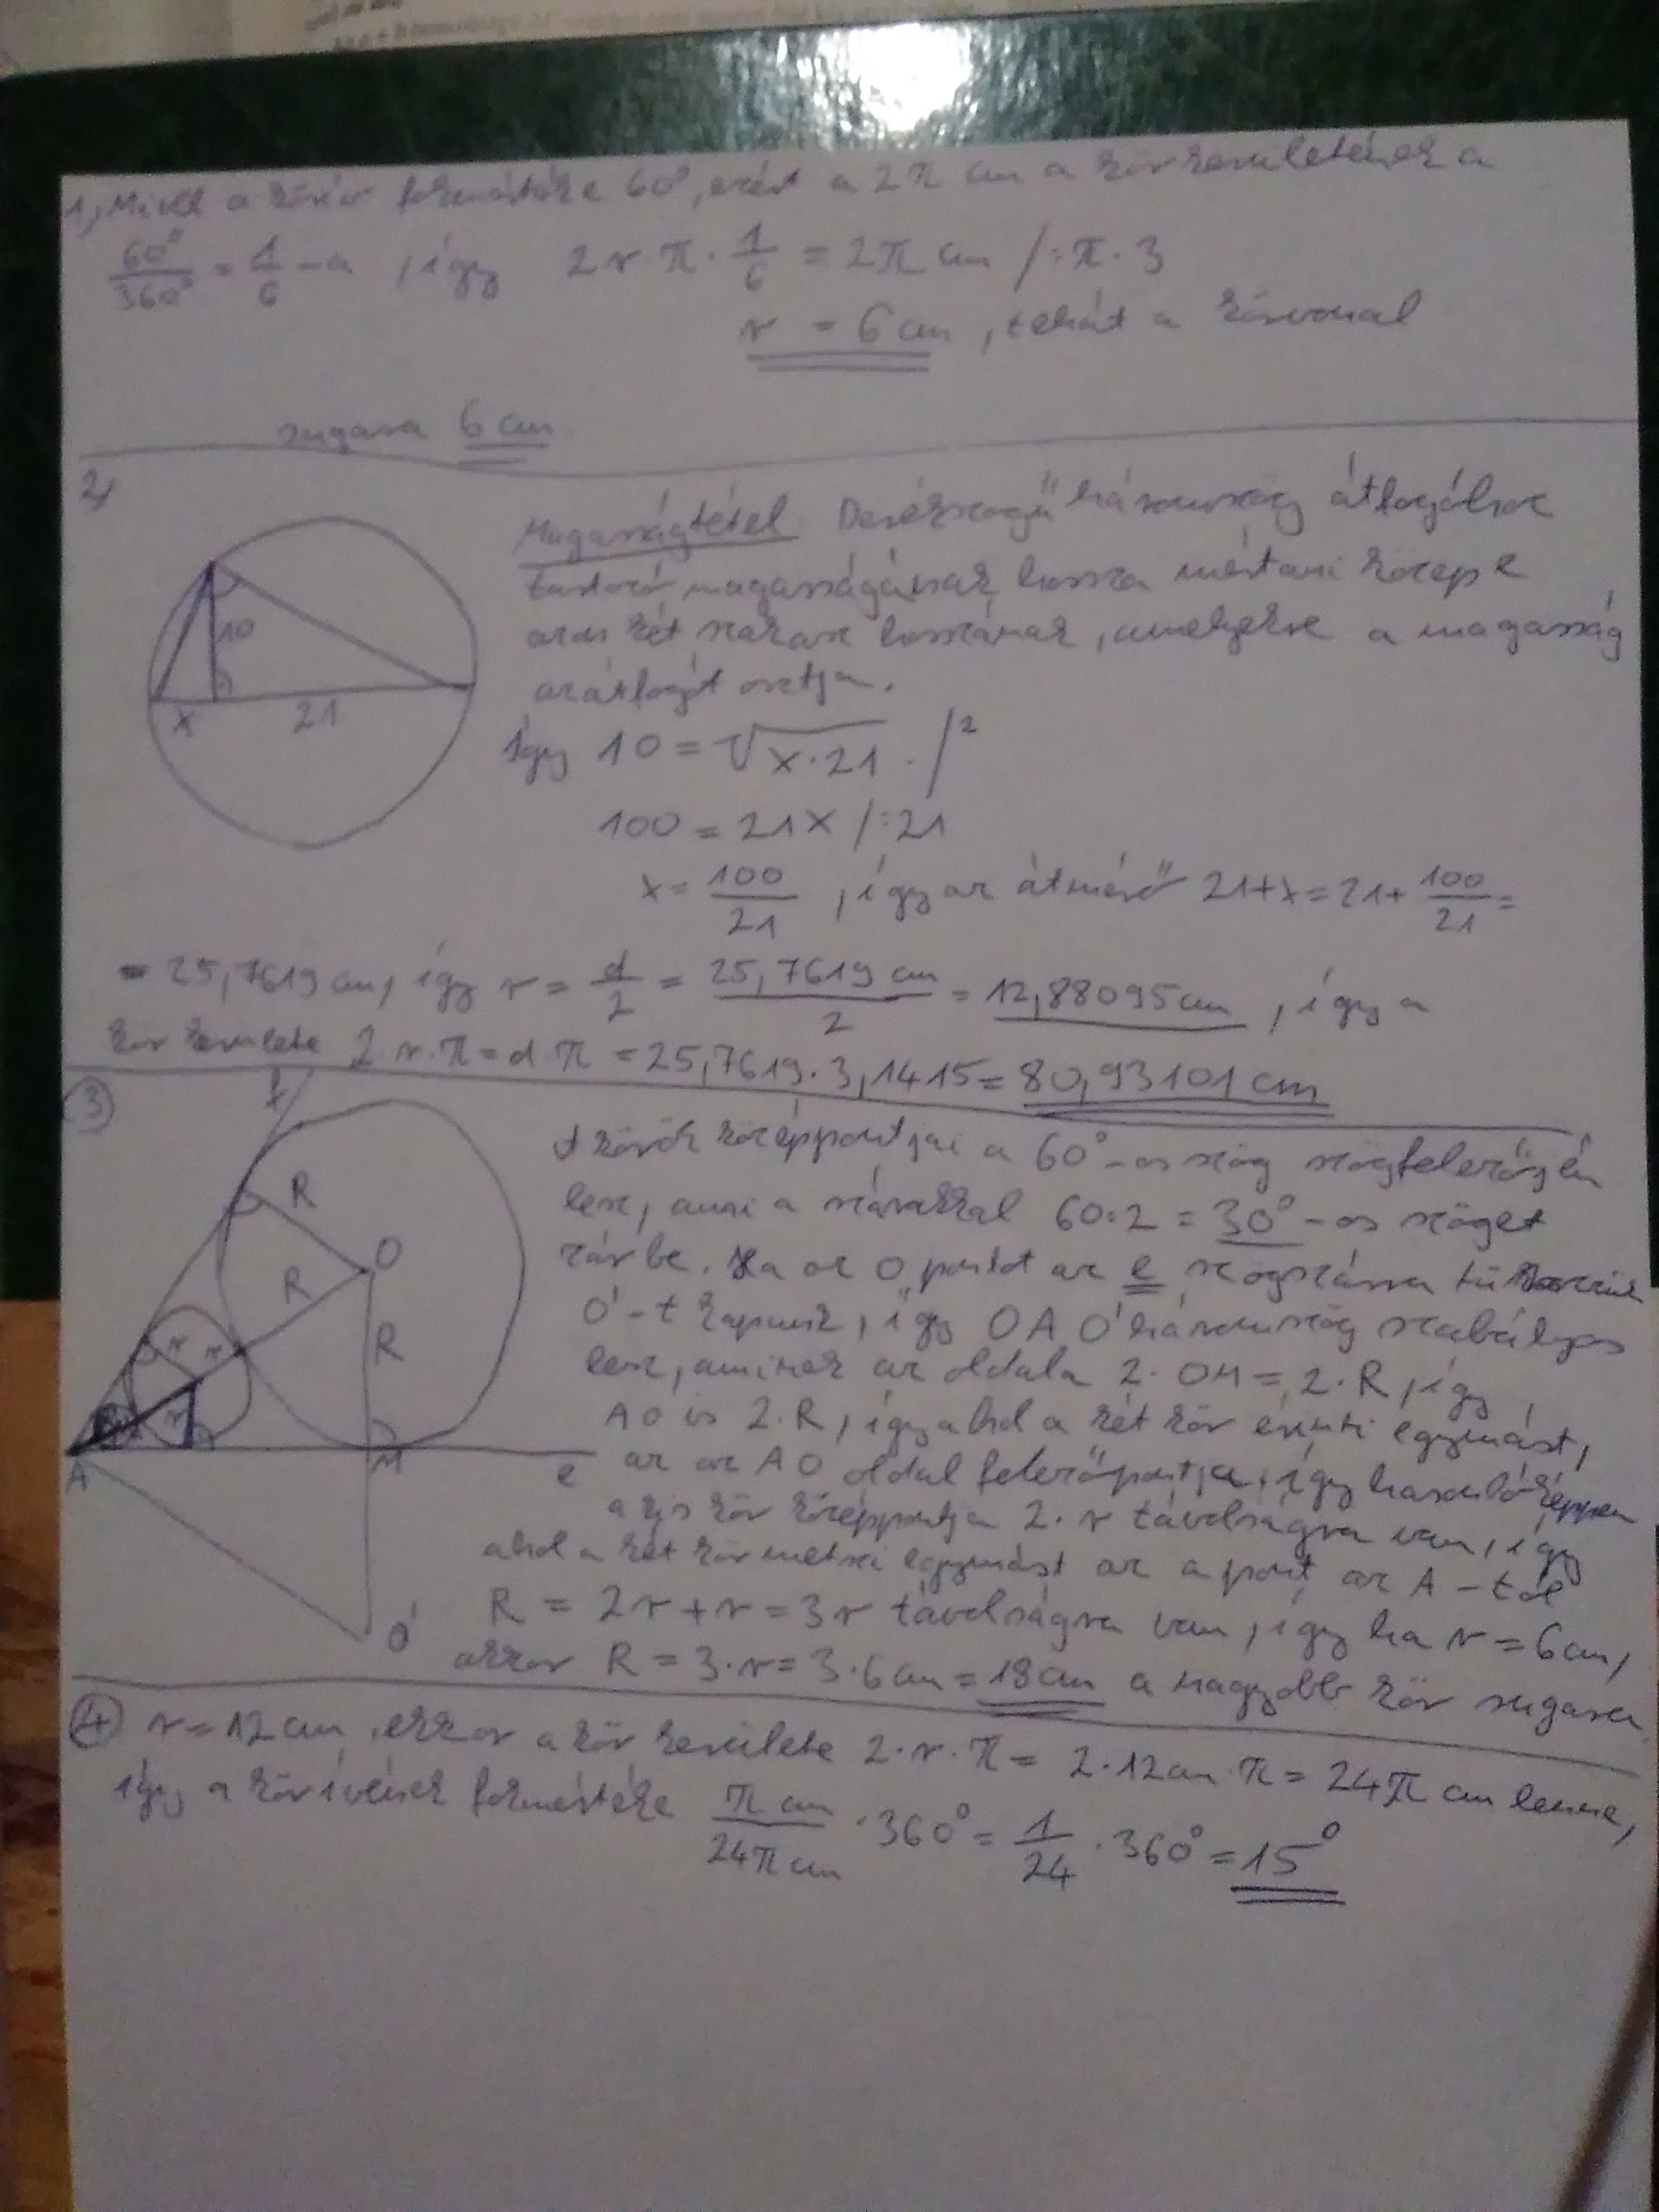 1, Mivel a körív fokmértéke 60°, ezért a 2π cm a kör kerületének a
60°/360° = 1/6 -a , így 2r·π· 1/6 = 2π cm /:π·3
r = 6 cm , tehát a körvonal
sugara 6 cm
2,
Magasságtétel Derékszögű háromszög átfogóhoz
tartozó magasságának hossza mértani közepe
azon két szakasz hosszának, amelyekre a magasság
az átfogót osztja.
10
x 21
Így 10 = √x·21 . /²
100 = 21x /:21
x = 100/21 , így az átmérő 21+x = 21+ 100/21 =
= 25,7619 cm, így r = d/2 = 25,7619 cm/2 = 12,88095 cm , így a
kör kerülete 2·r·π = d·π = 25,7619·3,1415 = 80,93101 cm
3
A körök középpontjai a 60°-os szög szögfelezőjén
lesz, ami a szárakkal 60:2 = 30°-os szöget
zár be. Ha az O pontot az e szögszárra
O'-t kapunk, így OAO' háromszög szabályos
lesz, aminek az oldala 2·OM = 2·R, így
AO is 2·R, így ahol a két kör érinti egymást,
az az AO oldal felezőpontja, így hasonlóképpen
a kis kör középpontja 2·r távolságra van, így
ahol a két kör metszi egymást az a pont az A-tól
R = 2r + r = 3r távolságra van, így ha r = 6 cm,
akkor R = 3·r = 3·6 cm = 18 cm a nagyobb kör sugara
R
O
R
R
r r
r
A M e
O'
4 r = 12 cm, ekkor a kör kerülete 2·r·π = 2·12 cm·π = 24π cm lenne,
így a kör ívének fokmértéke π cm/24π cm ·360° = 1/24 ·360° = 15°